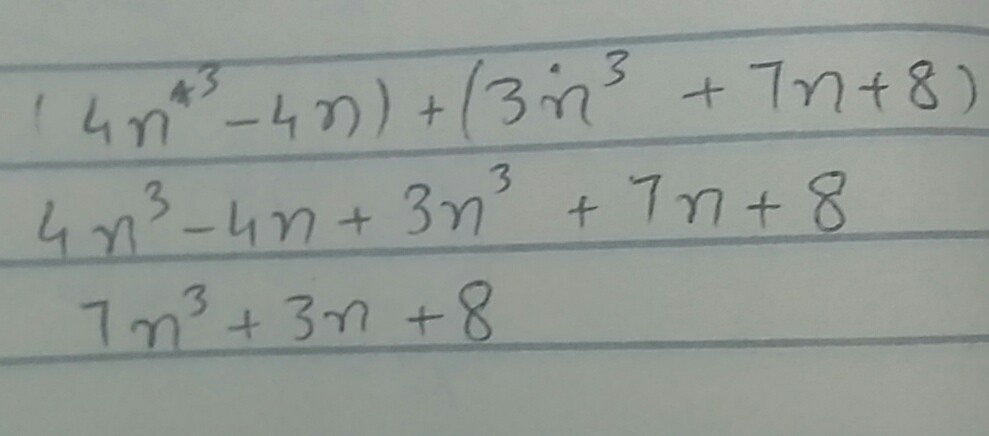 (4n³ - 4n) + (3n³ + 7n + 8)
4n³ - 4n + 3n³ + 7n + 8
7n³ + 3n + 8